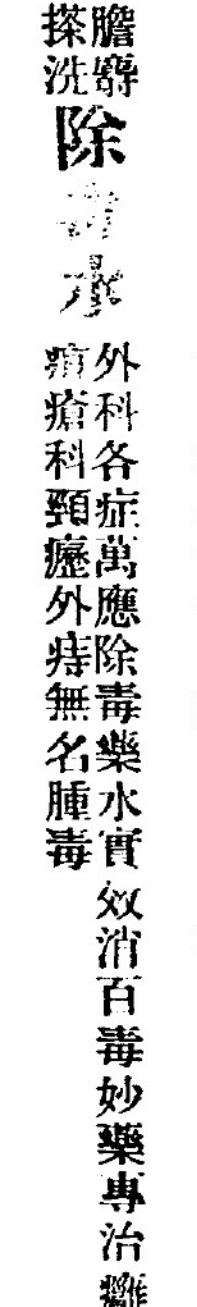 膽
搽洗
除水
外科各症萬應除毒藥水實效消百毒妙藥專治
瘡科頸癧外痔無名腫毒